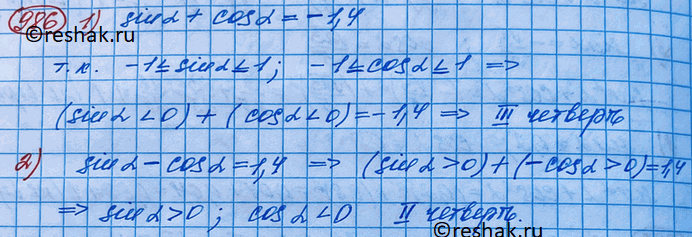 986 1) sinα + cosα = -1,4
©reshak.ru
т.к. -1≤sinα≤1; -1≤cosα≤1 =>
(sinα<0) + (cosα<0) = -1,4 => III четверть
2) sinα - cosα = 1,4 => (sinα>0) + (-cosα>0) = 1,4
=> sinα>0; cosα<0 II четверть.
©reshak.ru